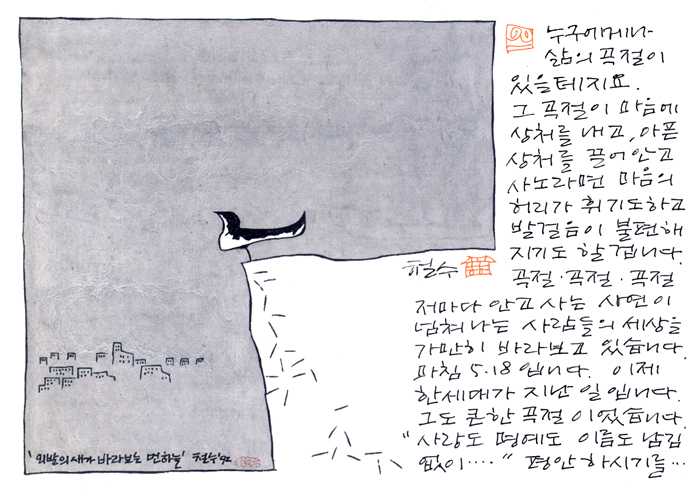 누구에게나
삶의 곡절이
있을테지요.
그 곡절이 마음에
상처를 내고, 아픈
상처를 끌어안고
사노라면 마음의
허리가 휘기도하고
발걸음이 불편해
지기도 할겁니다.
곡절·곡절·곡절
저마다 안고 사는 사연이
넘쳐나는 사람들의 세상을
가만히 바라보고 있습니다.
마침 5.18입니다. 이제
한세대가 지난 일입니다.
그도 큰한 곡절이었습니다.
"사랑도 명예도 이름도 남김
없이····" 평안하시기를···
철수
'외발의 새가 바라보는 먼하늘' 철수 '92